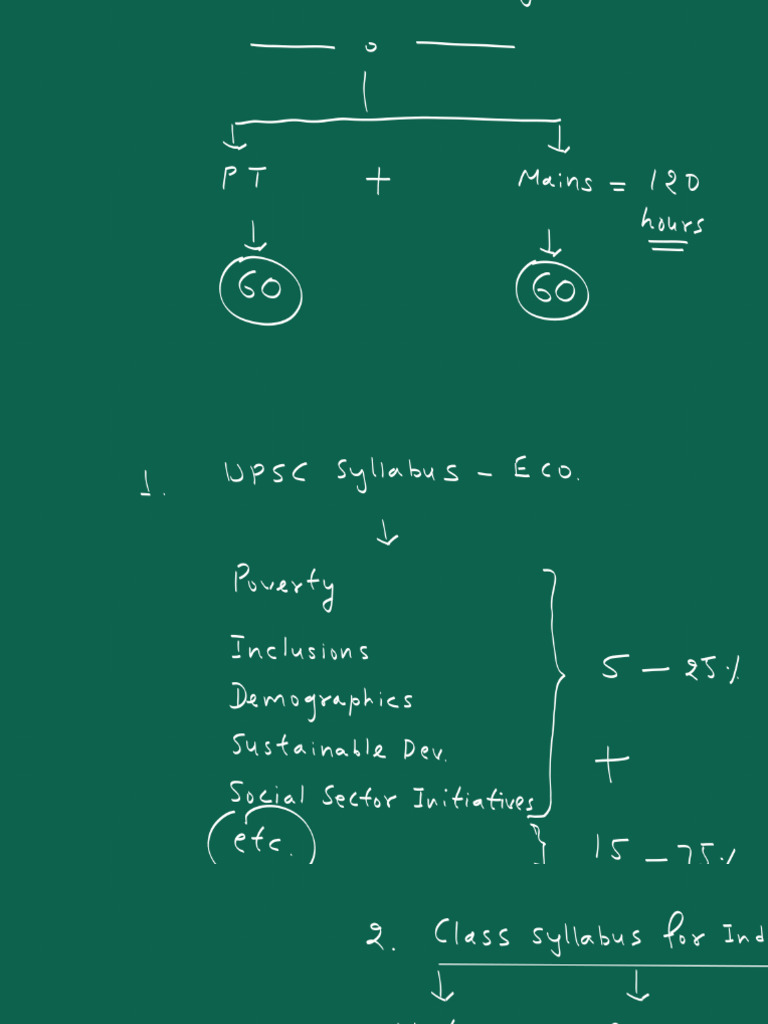 PT + Mains = 120
hours
60 60
1. UPSC Syllabus - Eco.
Poverty
Inclusions
Demographics
5 - 25%
Sustainable Dev.
+
Social Sector Initiatives
etc.
15 - 75%
2. Class syllabus for Ind